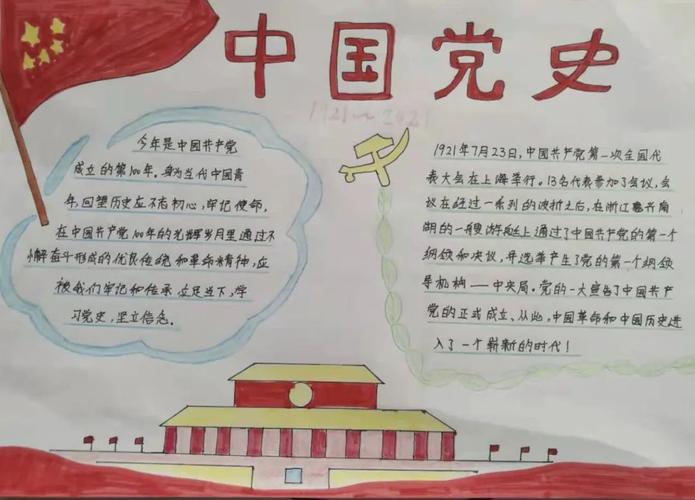 中国党史
1921~2021
今年是中国共产党
成立的第100年。身为当代中国青
年,回望历史应不忘初心,牢记使命,
在中国共产党100年的光辉岁月里通过不
懈奋斗形成的优良传统和革命精神,应
被我们牢记和传承 立足当下,学
习党史,坚立信念。
1921年7月23日,中国共产党第一次全国代
表大会在上海举行。13名代表参加了会议,会
议在经过一系列的波折之后,在浙江嘉兴南
湖的一艘游艇上通过了中国共产党的第一个
纲领和决议,并选举产生了党的第一个纲领
导机构——中央局。党的一大宣告了中国共产
党的正式成立、从此,中国革命和中国历史进
入了一个崭新的时代!